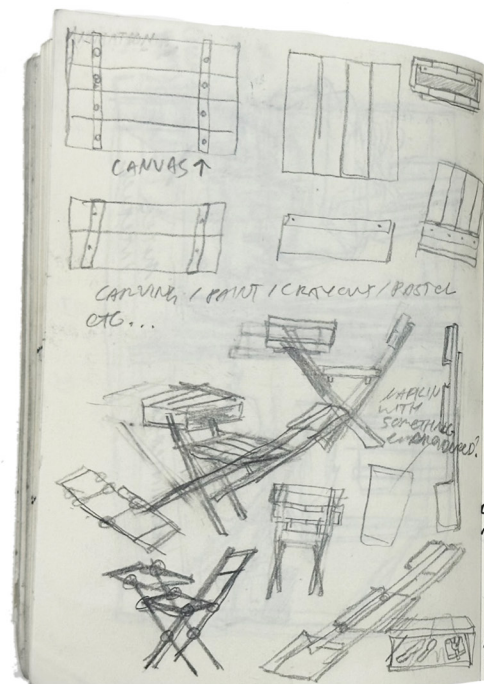 CANVAS ↑
CARVING / PAINT / CRAYONS / PASTEL
ETC...
NAPKIN
WITH
SOMETHING